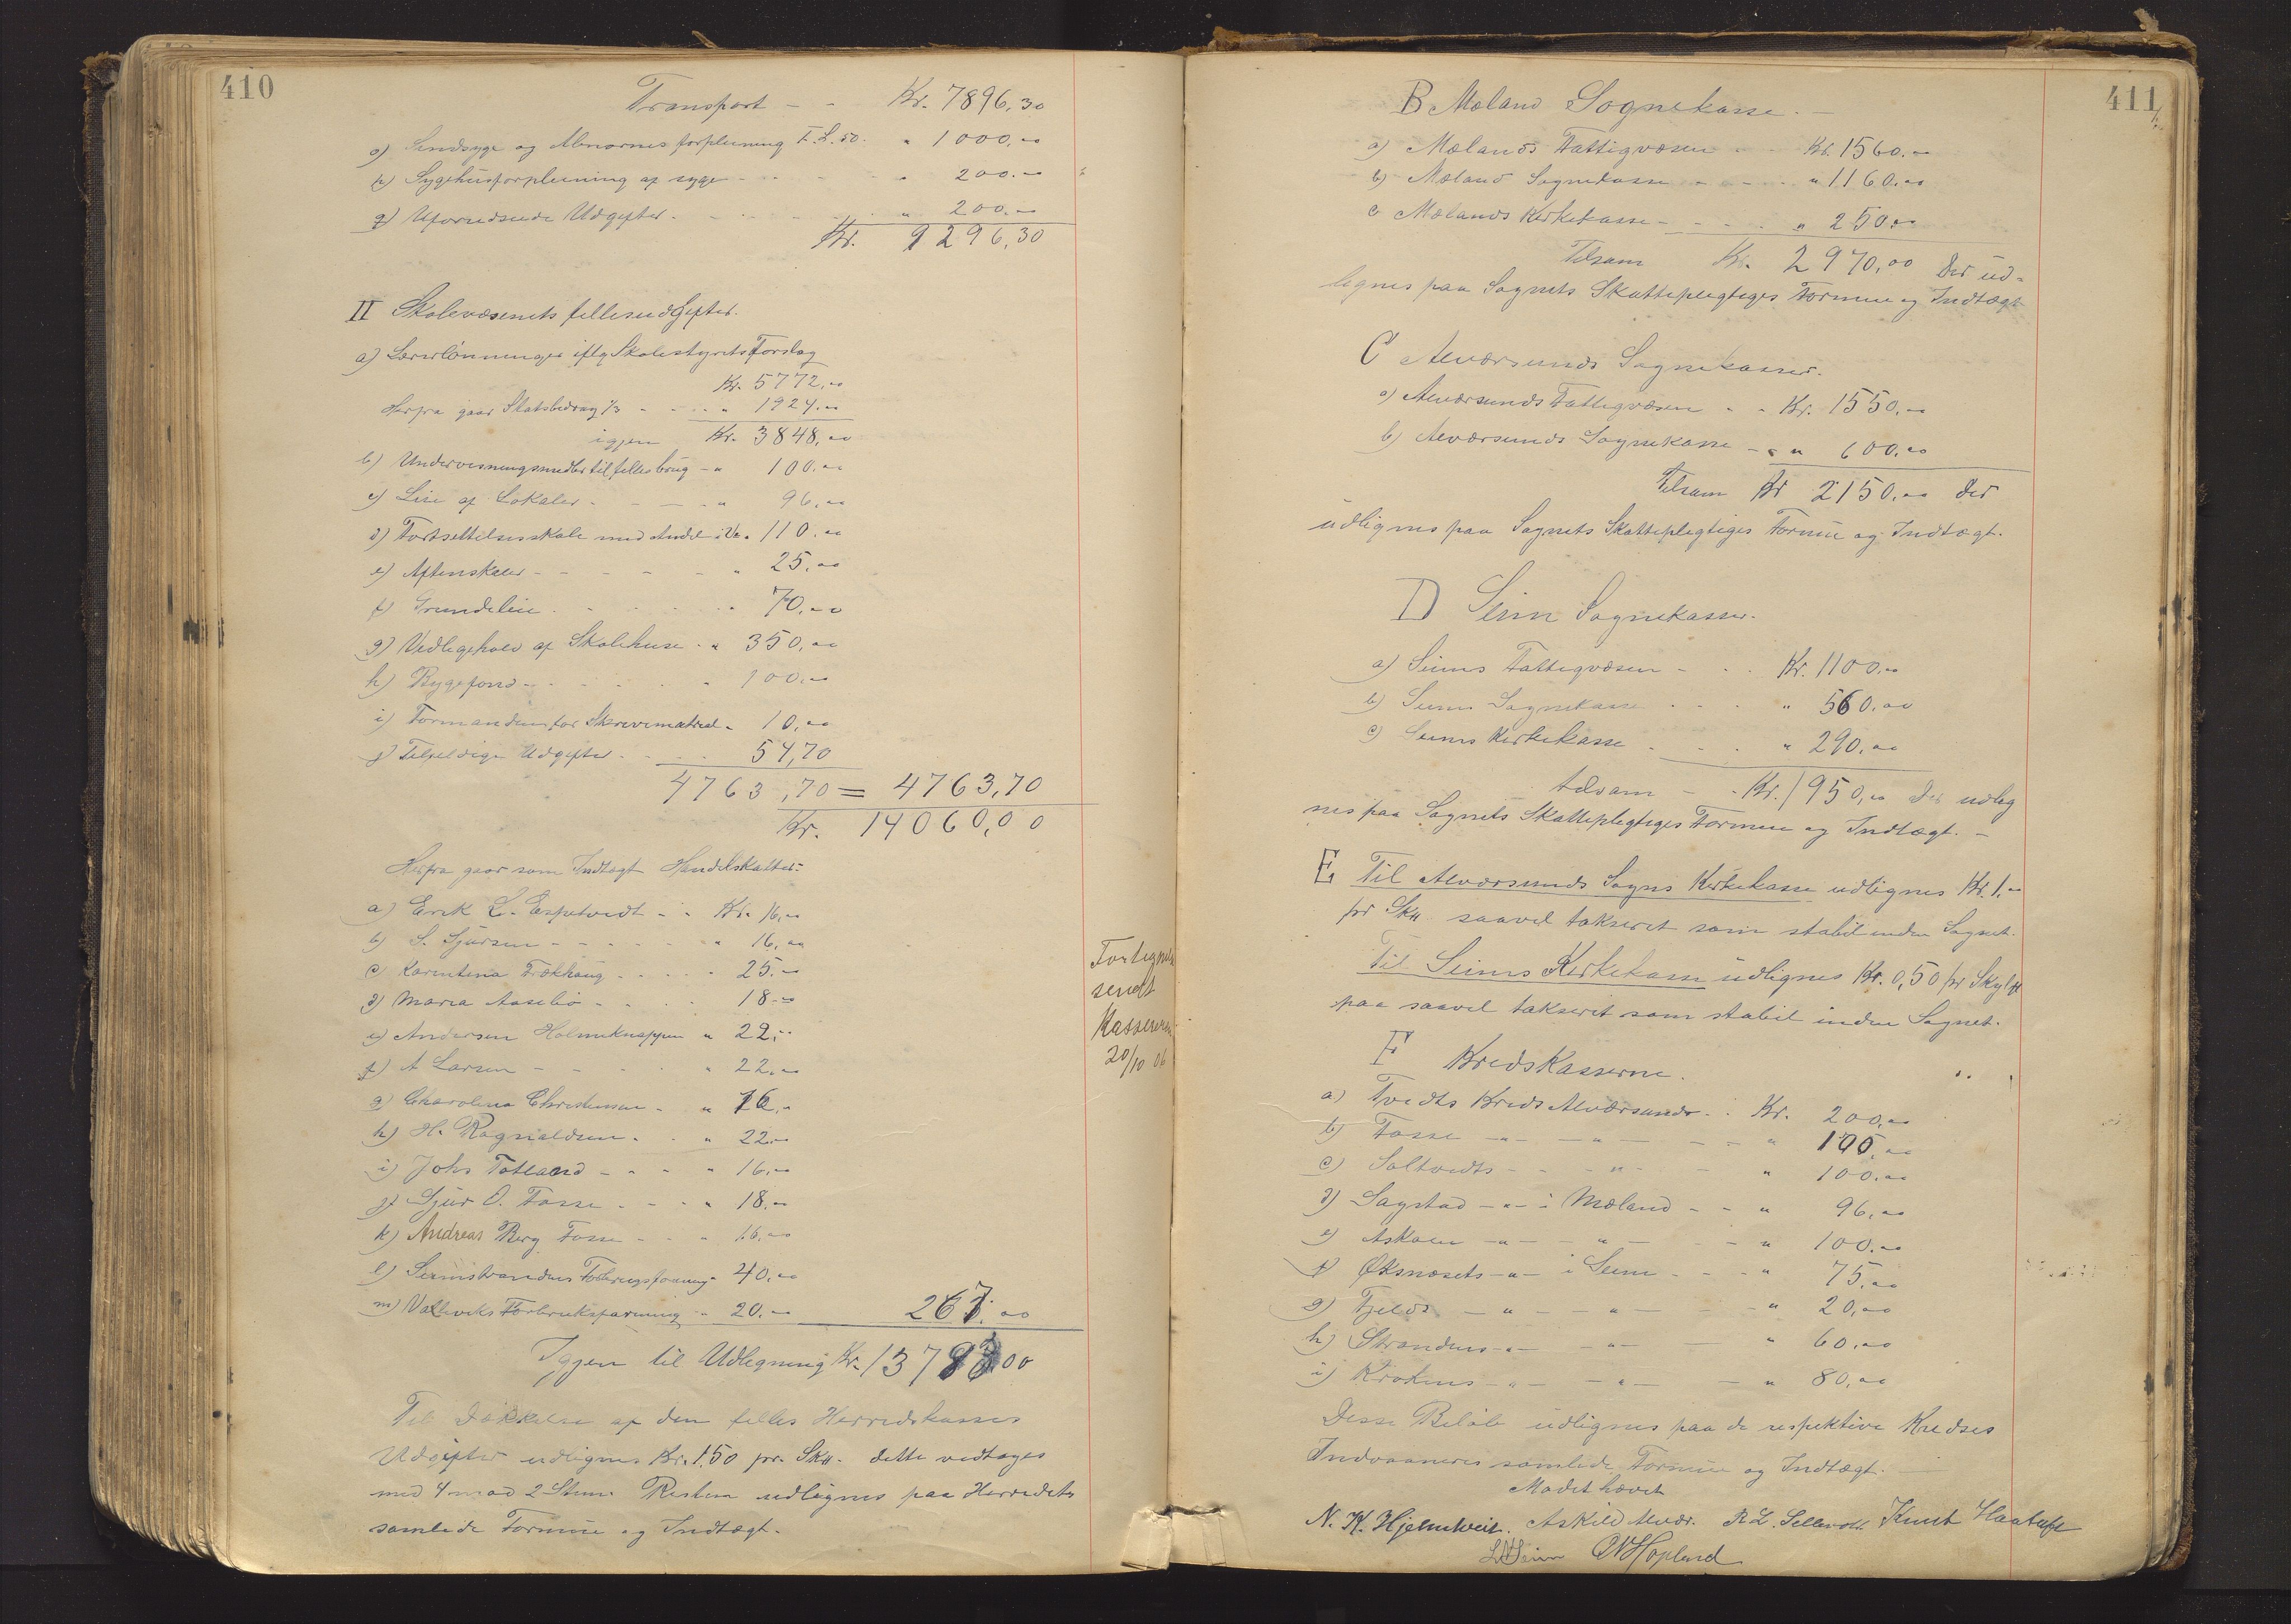 410
Transport - - Kr. 7896,30
o) Sindsyge og Abnormes forpleining F.L. 50. " 1000,00
p) Sygehusforpleining af syge - - - " 200.00
q) Uforudseede Udgifter. - - - " 200.00
Kr. 9296,30
II Skolevæsenets fellesudgifter.
a) Lærerlønninger iflg Skolestyrets Forslag
Kr. 5772,00
Herfra gaar Statsbidrag 1/3 - - - " 1924.00
igjen Kr. 3848,00
b) Undervisningsmidler til felles brug - " 100.00
c) Leie af Lokaler - - - " 96,00
d) Fortsettelsesskole med Andel i " 110.00
e) Aftenskoler - - - - " 25,00
f) Grundeleie - - - - " 70,00
g) Vedligehold af Skolehuse - " 350,00
h) Bygefond - - - - " 100.00
i) Formanden for Skrivematriel - 10,00
j) Tilfeldige Udgifter - - - 54,70
4763,70 = 4763,70
Kr. 14060,00
Herfra gaar som Indtægt Handelskatter:
a) Erik L. Espetvedt - - Kr. 16,00
b) S. Sjursen - - - - " 16,00
c) Karentina Frækhaug - - - - 25.00
d) Maria Aasebø - - - - 18.00
e) Andersen Holmeknappen " 22,-
f) A Larsen - - - - " 22.00
g) Charolina Christensen - " 16,-
h) H. Ragnvaldsen - - " 22.00
i) Johs Fotland - - - " 16.00
j) Sjur O. Fosse - - - " 18.00
k) Andreas Berg Fosse - - - 16,00
l) Seimstrandens Forbrugsforening - 40,00
m) Valleviks Forbruksforening - " 20.00 267.00
Igjen til Udligning Kr. 13793.00
Til Dækkelse af den felles Herredskasses
Udgifter udlignes Kr. 1,50 pr. Sk. dette vedtages
med 4 mod 2 Stem. Resten udlignes paa Herredets
samlede Formue og Indtægt.
Fortegnelse
sendt
Kassereren
20/10 06
411
B Mæland Sognekasse. -
a) Mælands Fattigvæsen - - Kr. 1560.00
b) Mæland Sognekasse - - - - " 1160.00
c Mælands Kirkekasse - - - - " 250.00
Tilsam Kr. 2970,00 Der ud-
lignes paa Sognets Skattepligtiges Formue og Indtægt
C Alværsunds Sognekasser.
a) Alværsunds Fattigvæsen - - Kr. 1550.-
b) Alværsunds Sognekasse - - " 600,00
Tilsam Kr 2150.00 der
udlignes paa Sognets Skattepligtiges Formue og Indtægt.
D Seim Sognekasser.
a) Seims Fattigvæsen - - - Kr. 1100.00
b) Seims Sognekasse - - - " 560.00
c) Seims Kirkekasse - - - " 290,00
tilsam - - Kr. 1950,00 der udlig
nes paa Sognets Skattepligtiges Formue og Indtægt. -
E Til Alværsunds Sogns Kirkekasse udlignes Kr. 1.00
pr Sk saavel takseret som stabil inden Sognet.
Til Seims Kirkekasse udlignes Kr. 0,50 pr Skyld
paa saavel takseret som stabil inden Sognet.
F Kredskasserne.
a) Tvedts Kreds Alværsunds - - Kr. 200,00
b) Fosse - " - - " - - - " 100,00
c) Soltvedts - - - " - - " 100.00
d) Sagstad - " - i Mæland - - " 96,00
e) Askeen - " - - " - - - " 100.00
f) Øksnæsets - " - i Seim - - - " 75,00
g) Fjelds - " - - " - - - " 20,00
h) Strandens - " - - " - - " 60.00
i) Krokens - " - - " - - " 80,00
Disse Beløb udlignes paa de respektive Kredses
Indvaaneres samlede Formue og Indtægt. -
Mødet hævet
N. K. Hjelmtveit. Askild Alvær. R L. Sellevoll Knut Haatuft
L Seim O N Hopland